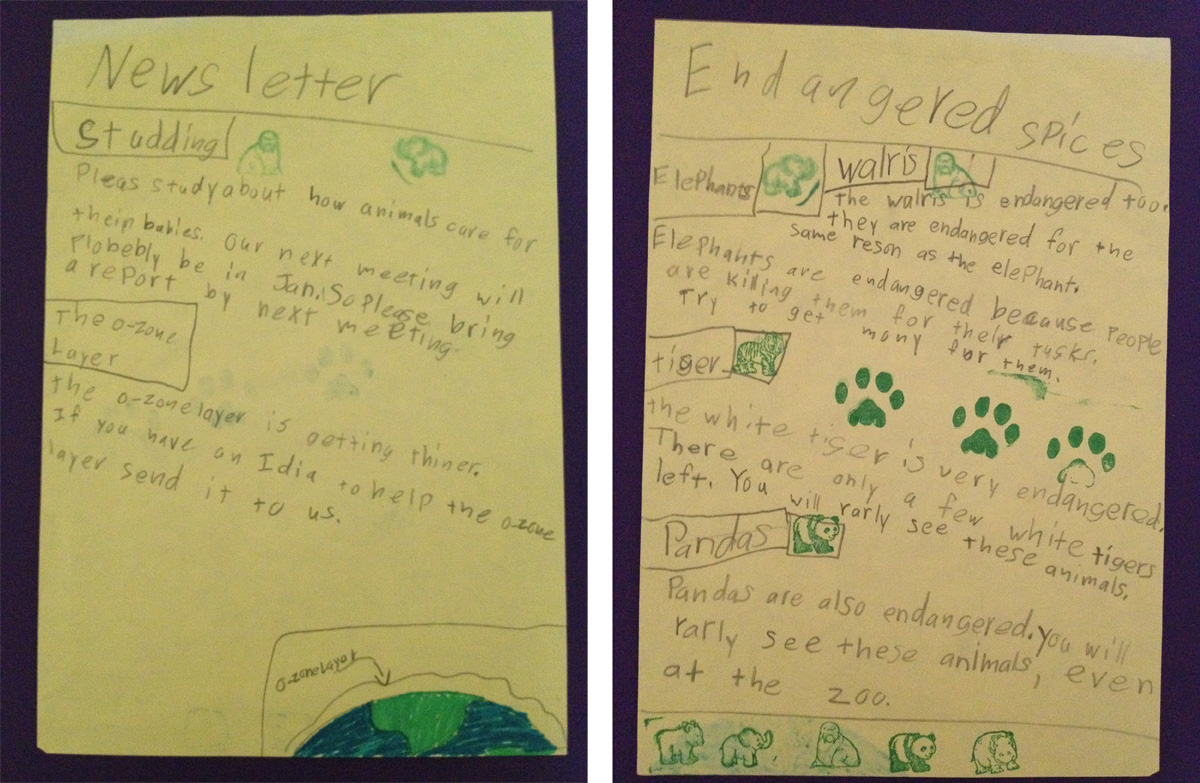 News letter
Studding
Pleas study about how animals care for
their babies. Our next meeting will
Plobebly be in Jan. So please bring
a report by next meeting.
The o-zone
Layer
the o-zone layer is getting thiner.
If you have an Idia to help the o-zone
layer send it to us.
O-zone layer
Endangered spices
Elephants
walris
the walris is endangered too.
they are endangered for the
same reson as the elephant.
Elephants are endangered because people
are killing them for their tusks.
Try to get mony for them.
tiger
the white tiger is very endangered.
There are only a few white tigers
left. You will rarly see these animals.
Pandas
Pandas are also endangered. you will
rarly see these animals, even
at the zoo.